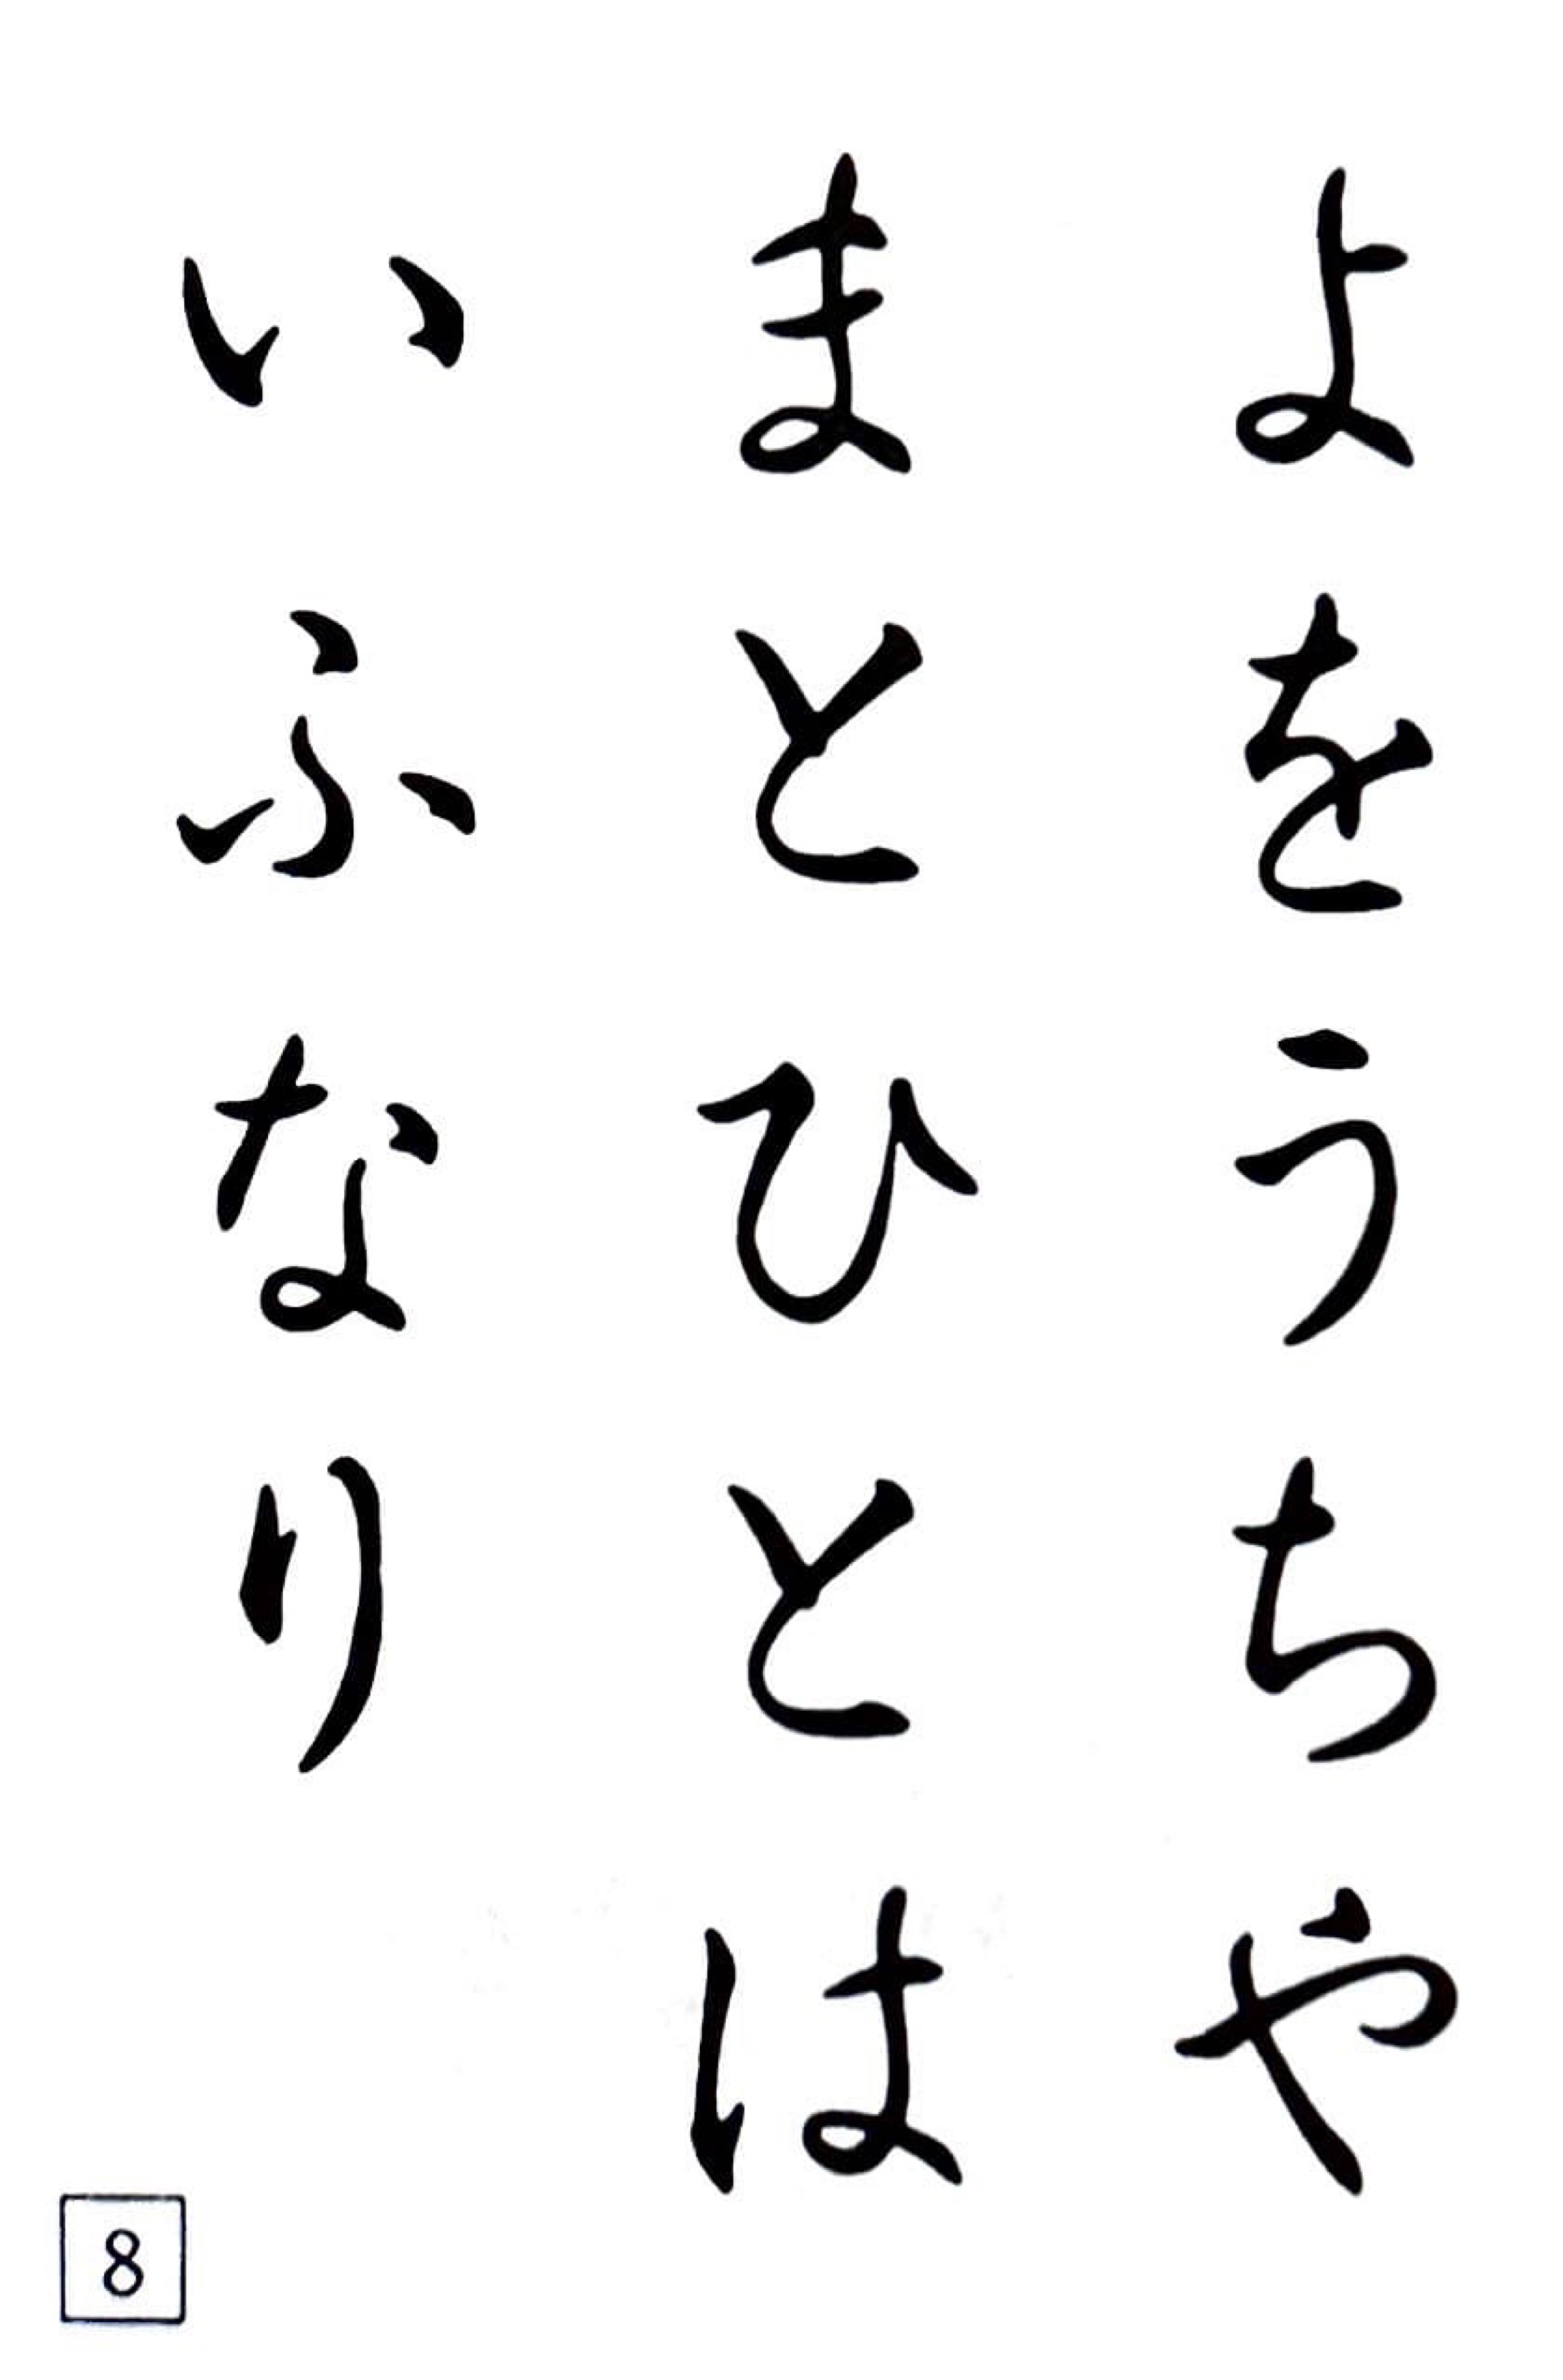 よをうちや
まとひとは
いふなり
8